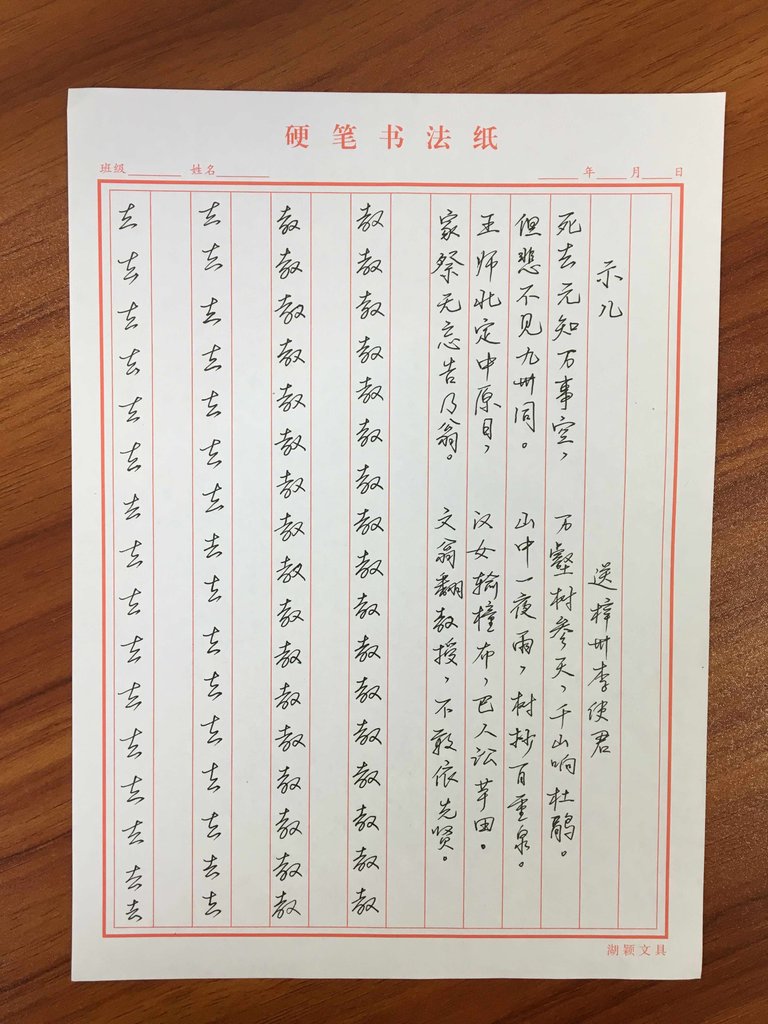 硬笔书法纸
班级 姓名 年 月 日
示儿
死去元知万事空，
但悲不见九州同。
王师北定中原日，
家祭无忘告乃翁。
送梓州李使君
万壑树参天，千山响杜鹃。
山中一夜雨，树杪百重泉。
汉女输橦布，巴人讼芋田。
文翁翻教授，不敢依先贤。
教教教教教教教教教教教教教教教教教
教教教教教教教教教教教教教教教教教
去去去去去去去去去去去去去去去去
去去去去去去去去去去去去去去去去
湖颖文具